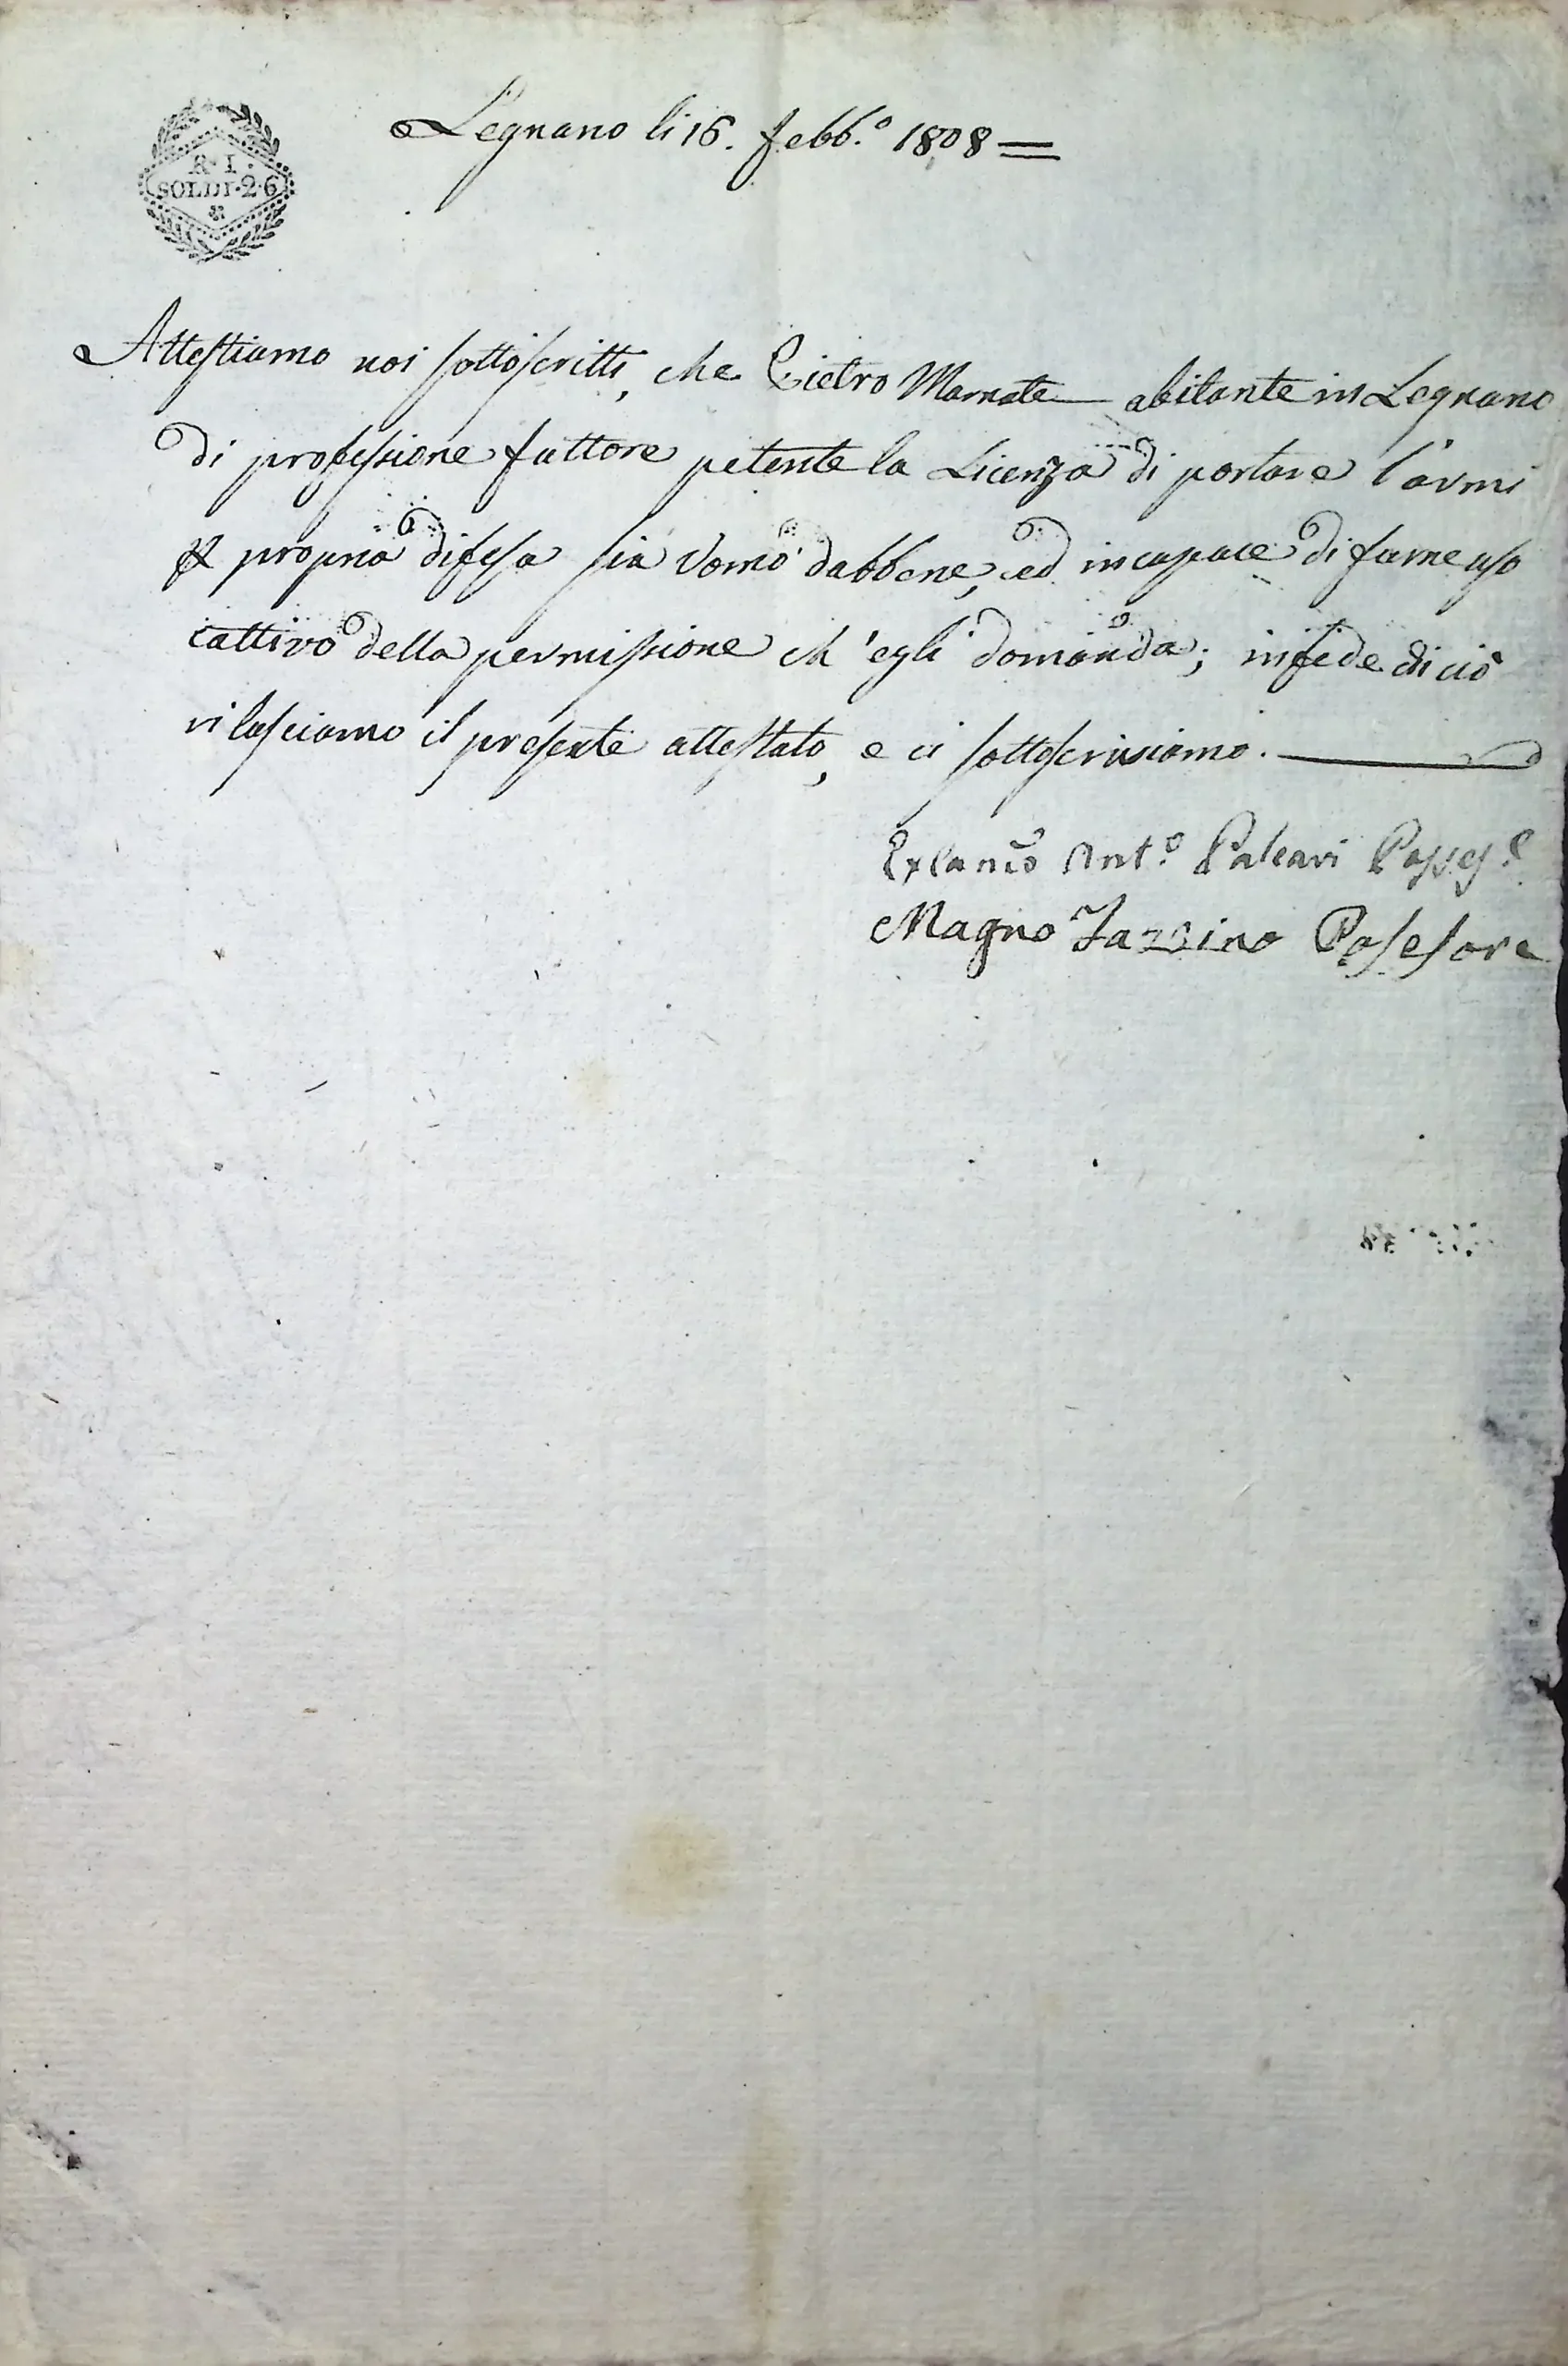 Legnano li 16. febb.º 1808 =
R. I.
SOLDI·2·6
Attestiamo noi sottoscritti, che Pietro Marnate abitante in Legnano
di professione fattore petente la Licenza di portare l'armi
per propria difesa sia Uomo dabbene, ed incapace di farne uso
cattivo della permissione ch'egli domanda; in fede di ciò
rilasciamo il presente attestato, e ci sottoscriviamo.
Ant.º Paleari Posses.e
Magno Possesore